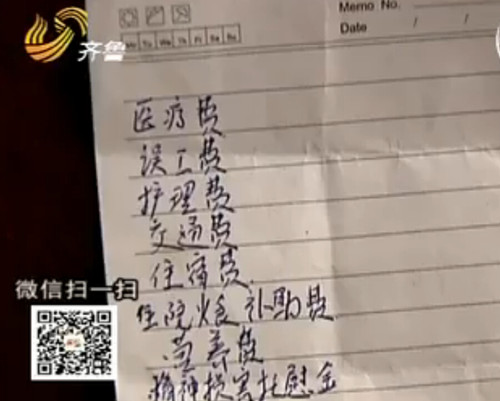 Memo No.
Date / /
Mo Tu We Th Fr Sa Su
齐鲁
医疗费
误工费
护理费
交通费
住宿费
住院伙食补助费
营养费
精神损害抚慰金
微信扫一扫